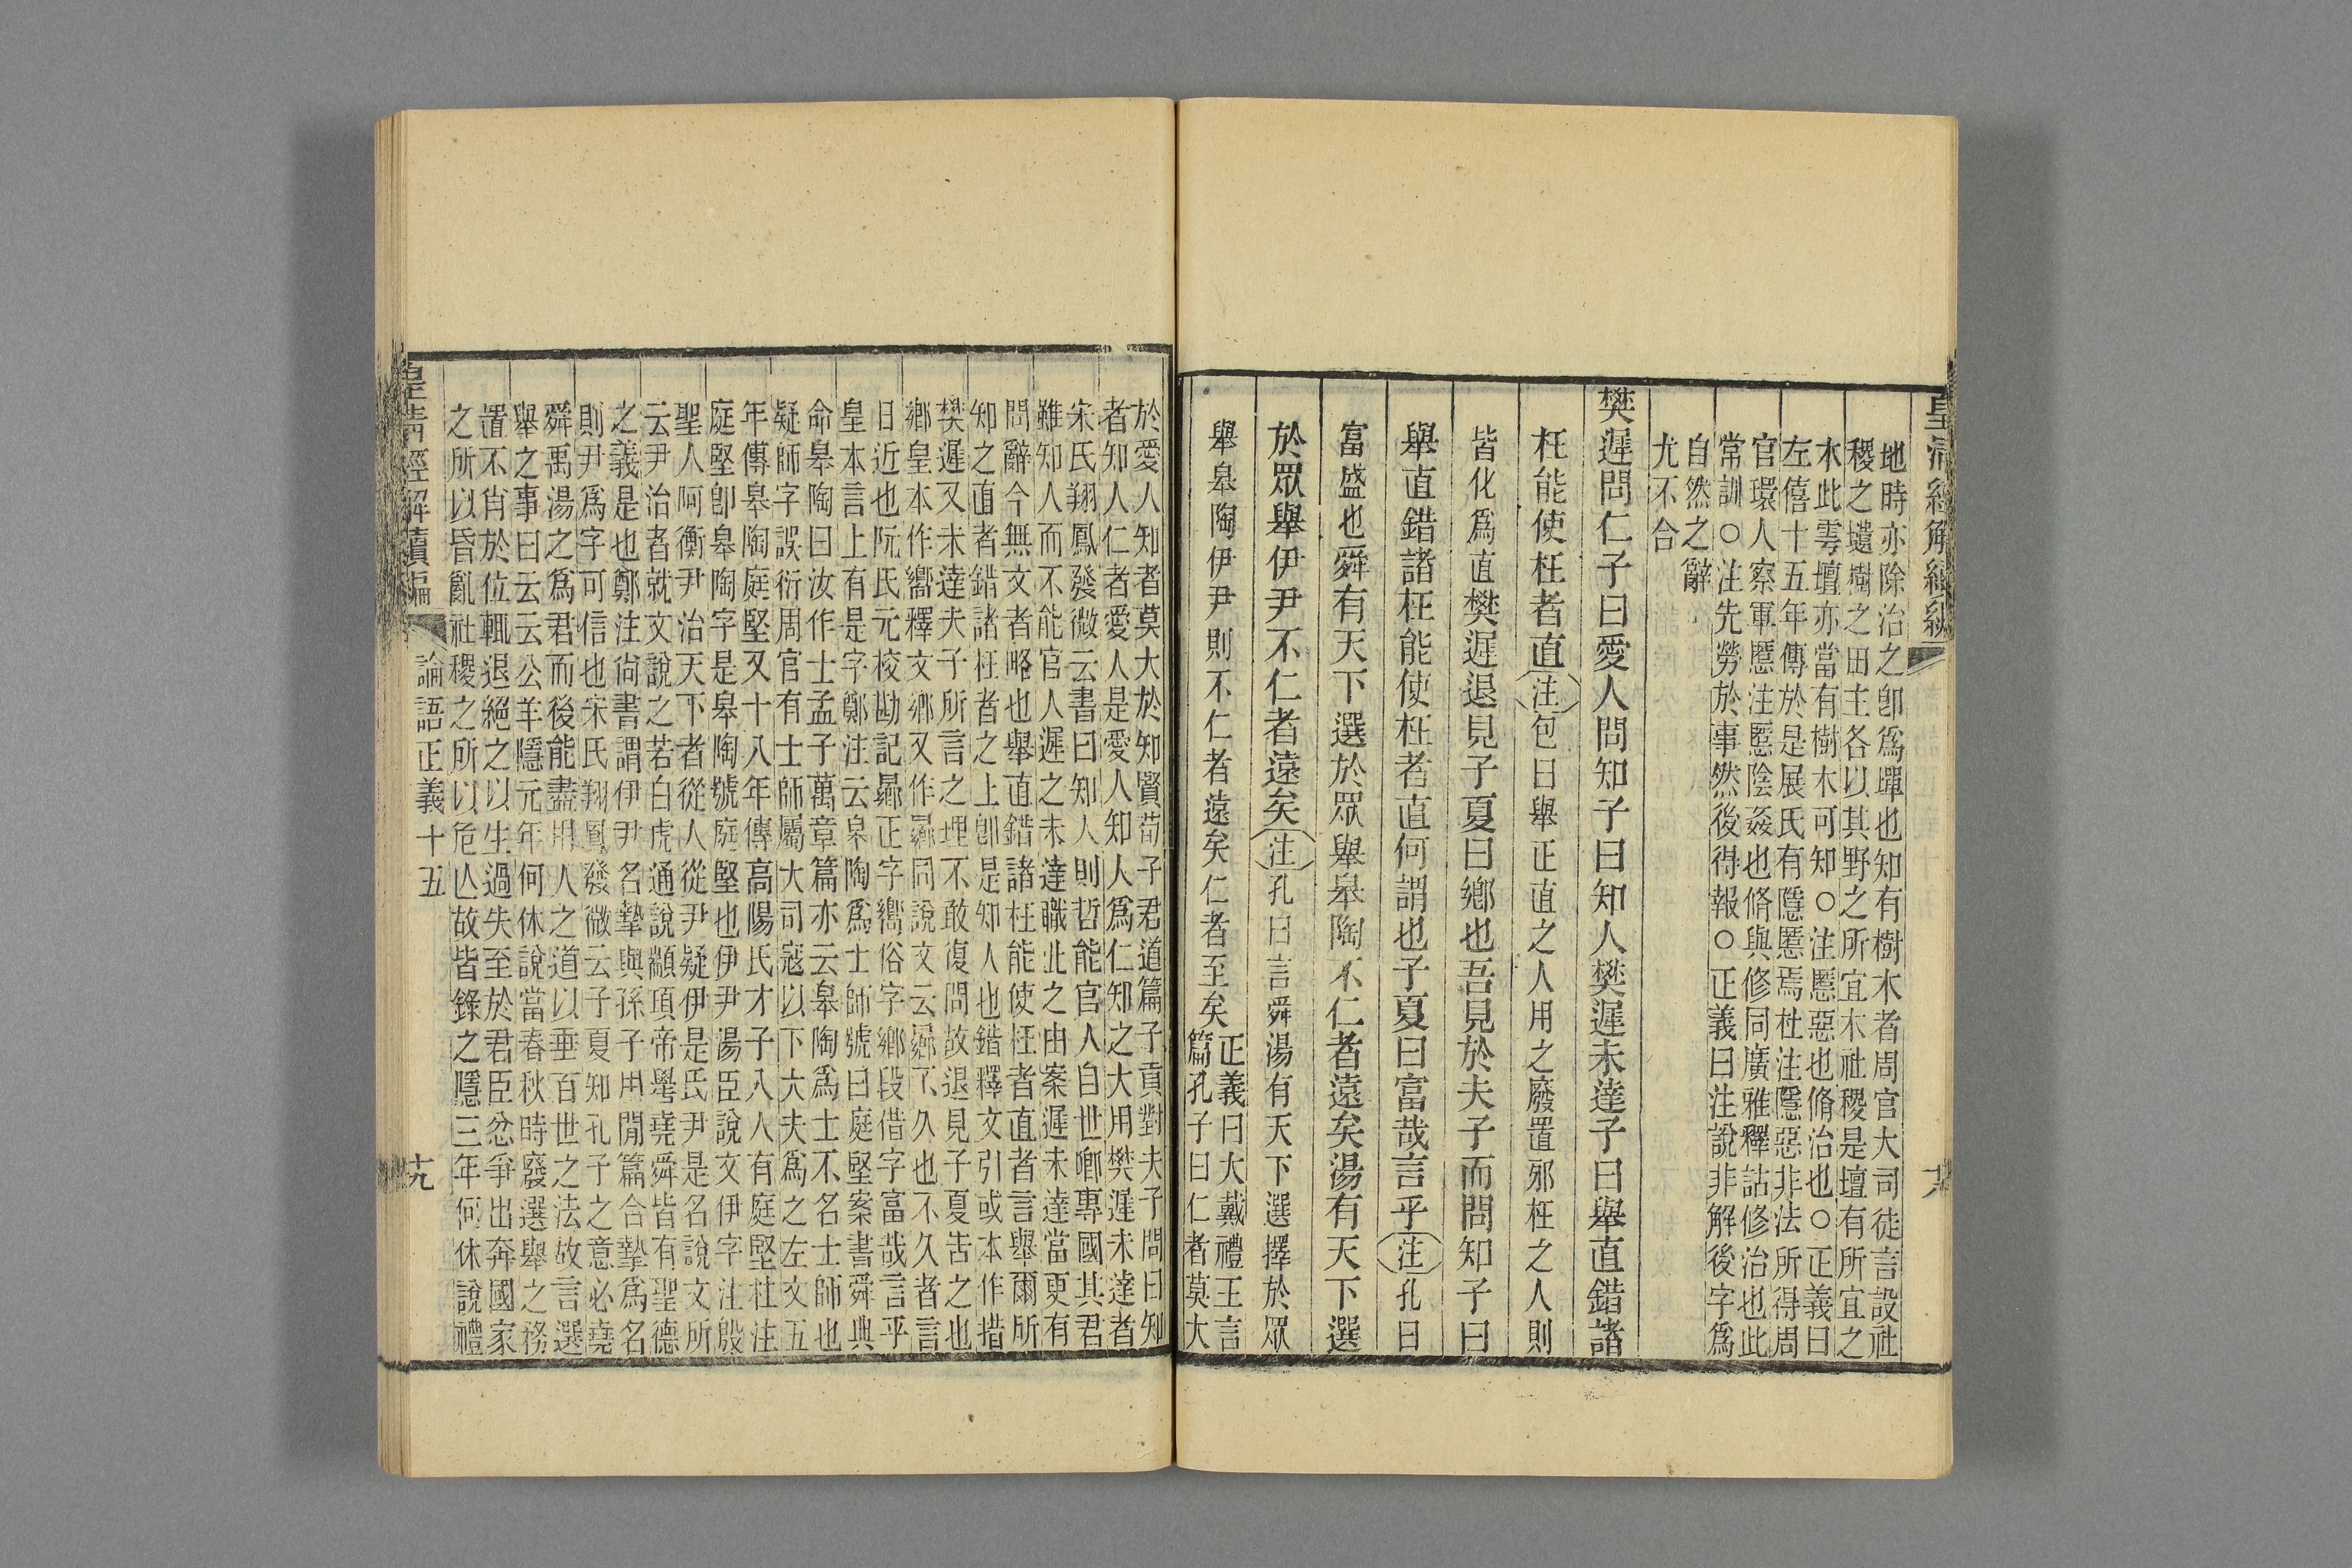 皇清經解續編
地時亦除治之卽爲墠也知有樹木者周官大司徒言設社
稷之壝樹之田主各以其野之所宜木社稷是壇有所宜之
木此雩壇亦當有樹木可知○注慝惡也脩治也○正義曰
左僖十五年傳於是展氏有隱慝焉杜注隱惡非法所得周
官環人察軍慝注慝陰姦也脩與修同廣雅釋詁修治也此
常訓○注先勞於事然後得報○正義曰注說非解後字爲
自然之辭
尤不合
樊遲問仁子曰愛人問知子曰知人樊遲未達子曰舉直錯諸
枉能使枉者直注包曰舉正直之人用之廢置邪枉之人則
皆化爲直樊遲退見子夏曰鄉也吾見於夫子而問知子曰
舉直錯諸枉能使枉者直何謂也子夏曰富哉言乎注孔曰
富盛也舜有天下選於眾舉皋陶不仁者遠矣湯有天下選
於眾舉伊尹不仁者遠矣注孔曰言舜湯有天下選擇於眾
舉皋陶伊尹則不仁者遠矣仁者至矣
正義曰大戴禮王言
篇孔子曰仁者莫大
於愛人知者莫大於知賢荀子君道篇子貢對夫子問曰知
者知人仁者愛人是愛人知人爲仁知之大用樊遲未達者
宋氏翔鳳發微云書曰知人則哲能官人自世卿專國其君
雖知人而不能官人遲之未達職此之由案遲未達當更有
問辭今無文者略也舉直錯諸枉能使枉者直者言舉爾所
知之直者錯諸枉者之上卽是知人也錯釋文引或本作措
樊遲又未達夫子所言之理不敢復問故退見子夏告之也
鄉皇本作嚮釋文鄉又作曏同說文云曏不久也不久者言
日近也阮氏元校勘記曏正字嚮俗字鄉段借字富哉言乎
皇本言上有是字鄭注云皋陶爲士師號曰庭堅案書舜典
命皋陶曰汝作士孟子萬章篇亦云皋陶爲士不名士師也
疑師字誤衍周官有士師屬大司寇以下大夫爲之左文五
年傳皋陶庭堅又十八年傳高陽氏才子八人有庭堅杜注
庭堅卽皋陶字是皋陶號庭堅也伊尹湯臣說文伊字注殷
聖人阿衡尹治天下者從人從尹疑伊是氏尹是名說文所
云尹治者就文說之若白虎通說顓頊帝嚳堯舜皆有聖德
之義是也鄭注尚書謂伊尹名摯與孫子用閒篇合摯爲名
則尹爲字可信也宋氏翔鳳發微云子夏知孔子之意必堯
舜禹湯之爲君而後能盡用人之道以垂百世之法故言選
舉之事曰云云公羊隱元年何休說當春秋時廢選舉之務
置不肖於位輒退絕之以生過失至於君臣忿爭出奔國家
之所以昏亂社稷之所以危亾故皆錄之隱三年何休說禮
皇清經解續編
論語正義十五